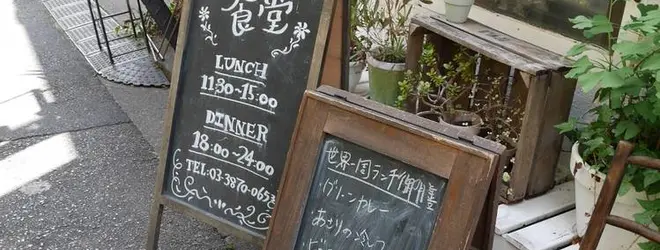 食堂
LUNCH
11:30~15:00
DINNER
18:00~24:00
TEL:03-3870-06
世界一周ランチ御膳
・グリーンカレー